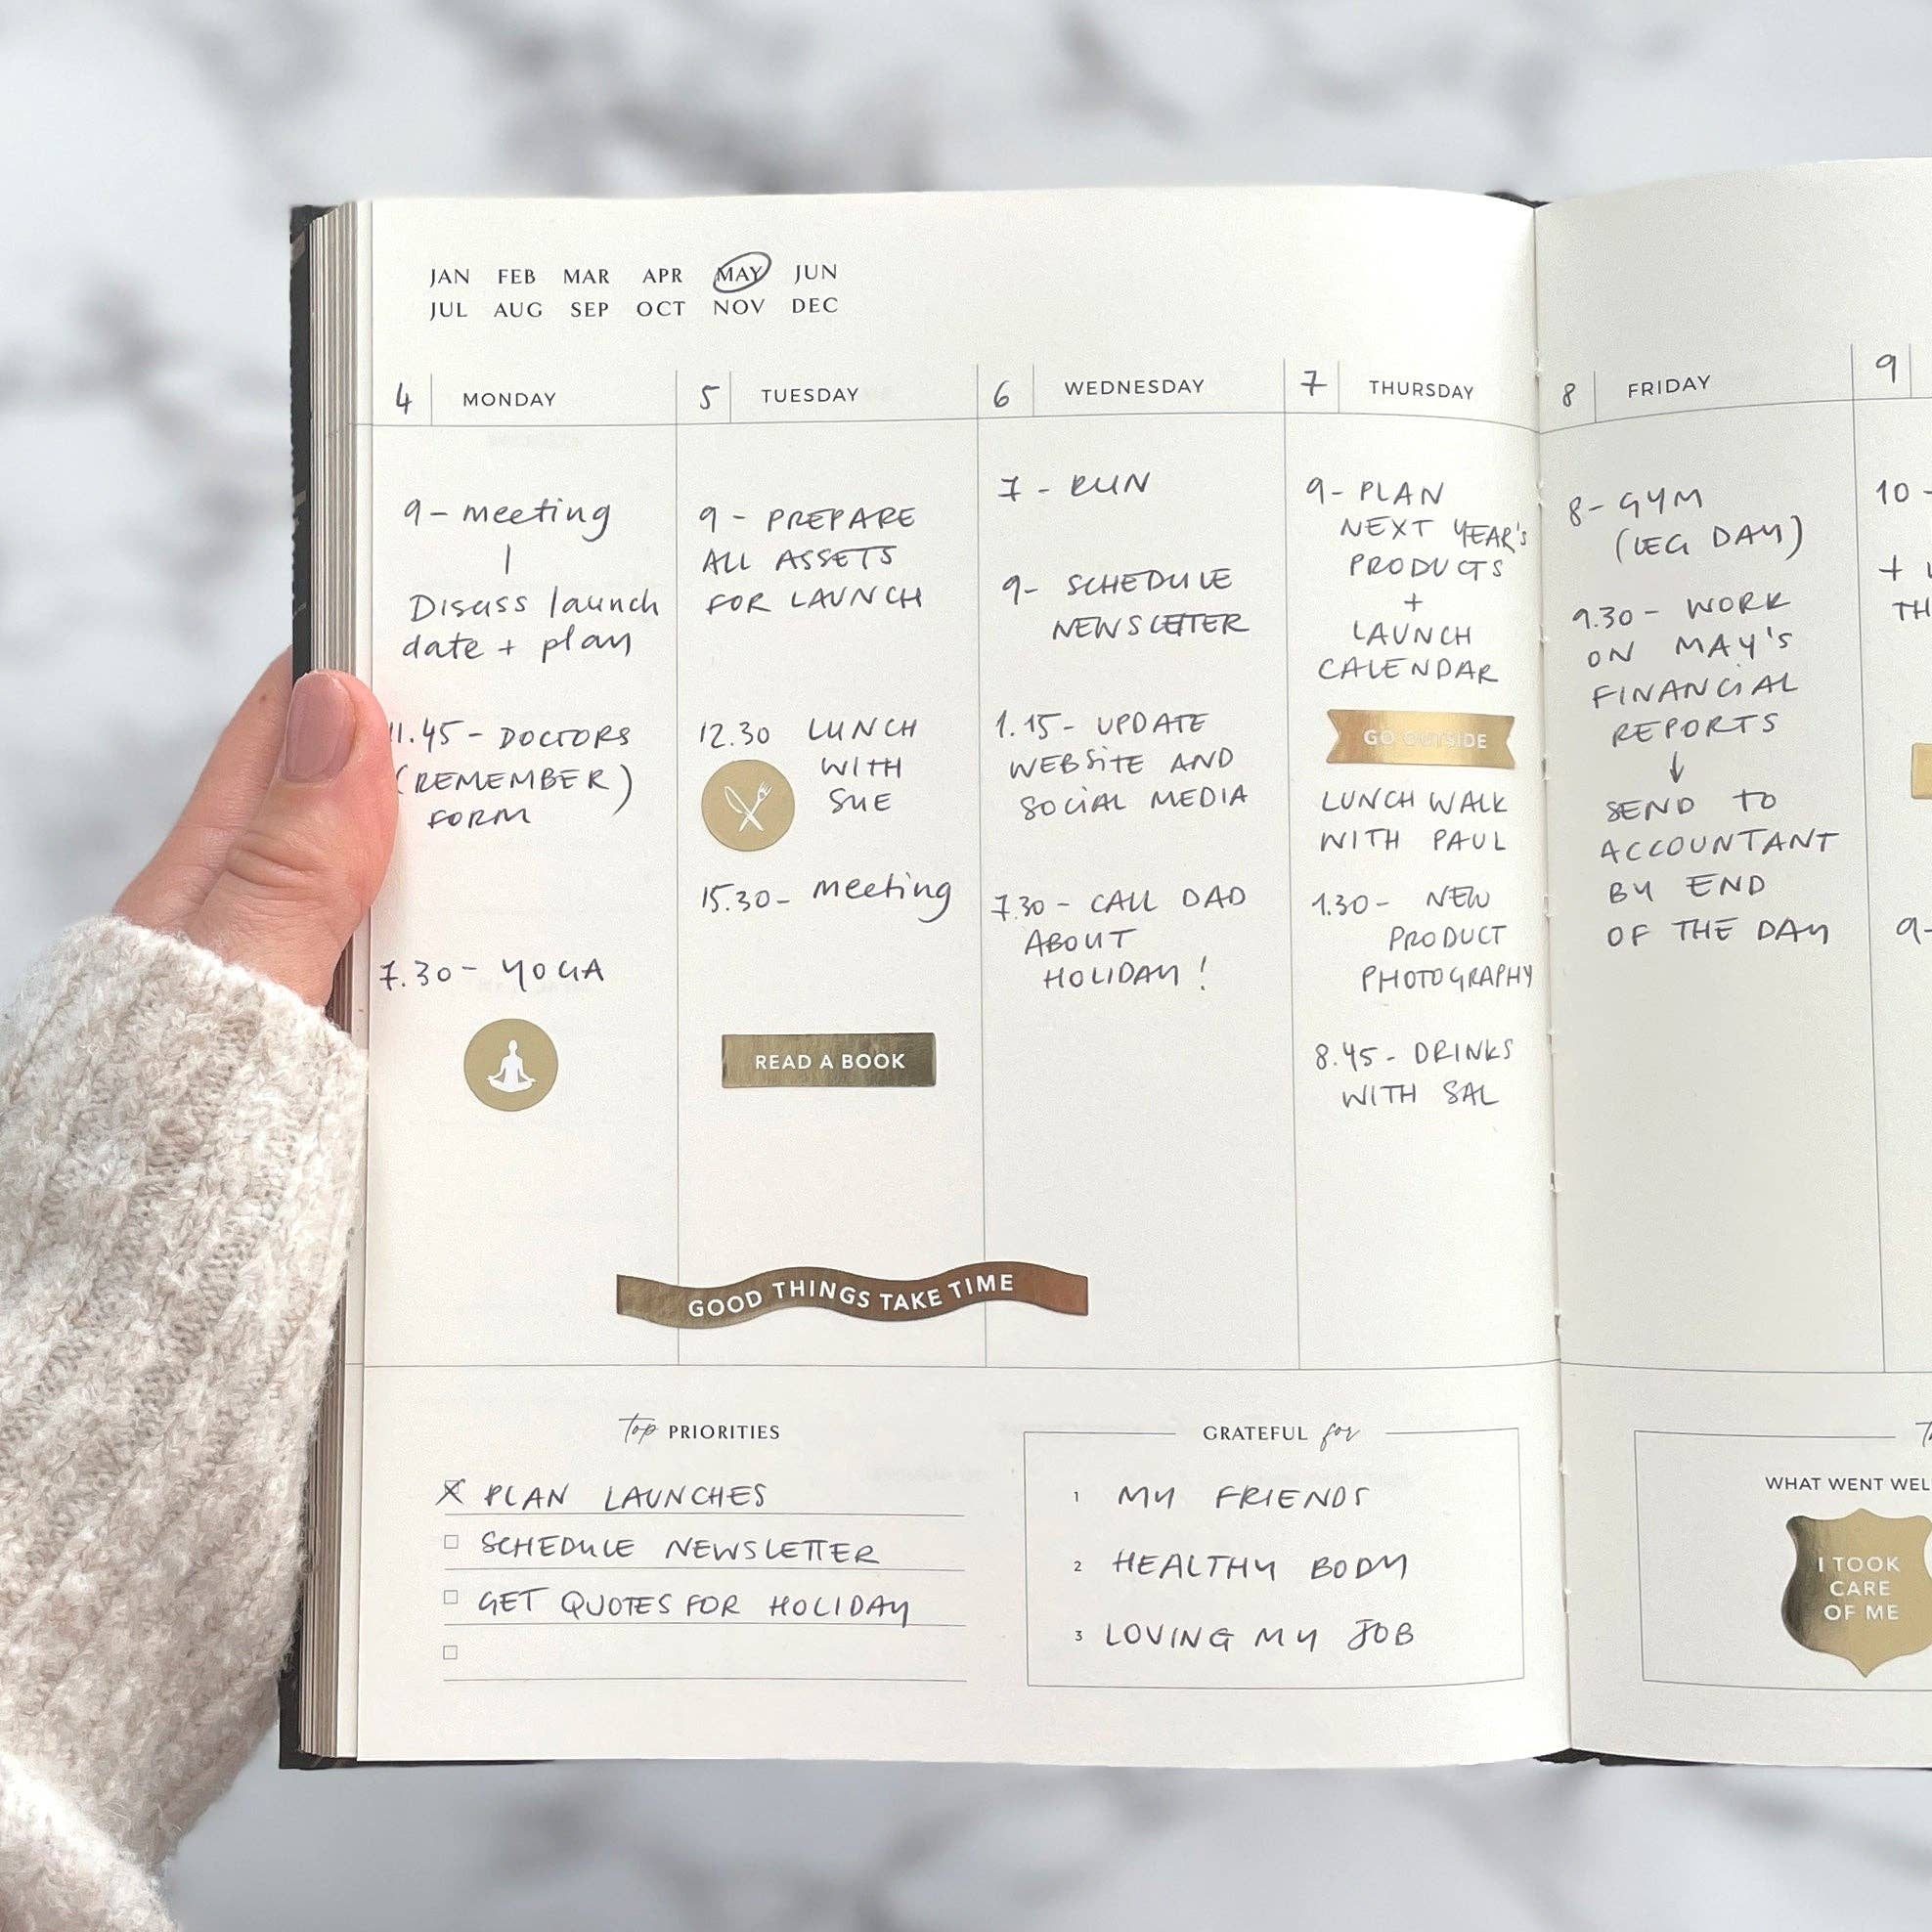 JAN FEB MAR APR MAY JUN
JUL AUG SEP OCT NOV DEC
4 MONDAY
9 - meeting
Disuss launch
date + plan
11.45 - DOCTORS
(REMEMBER)
FORM
7.30 - YOGA
5 TUESDAY
9 - PREPARE
ALL ASSETS
FOR LAUNCH
12.30 LUNCH
WITH
SUE
15.30 - meeting
READ A BOOK
6 WEDNESDAY
7 - RUN
9 - SCHEDULE
NEWSLETTER
1.15 - UPDATE
WEBSITE AND
SOCIAL MEDIA
7.30 - CALL DAD
ABOUT
HOLIDAY!
7 THURSDAY
9 - PLAN
NEXT YEAR'S
PRODUCTS
+
LAUNCH
CALENDAR
GO OUTSIDE
LUNCH WALK
WITH PAUL
1.30 - NEW
PRODUCT
PHOTOGRAPHY
8.45 - DRINKS
WITH SAL
8 FRIDAY
8 - GYM
(LEG DAY)
9.30 - WORK
ON MAY'S
FINANCIAL
REPORTS
↓
SEND TO
ACCOUNTANT
BY END
OF THE DAY
9
10 -
+
TH
9 -
GOOD THINGS TAKE TIME
top PRIORITIES
PLAN LAUNCHES
SCHEDULE NEWSLETTER
GET QUOTES FOR HOLIDAY
GRATEFUL for
1 MY FRIENDS
2 HEALTHY BODY
3 LOVING MY JOB
WHAT WENT WEL
I TOOK
CARE
OF ME